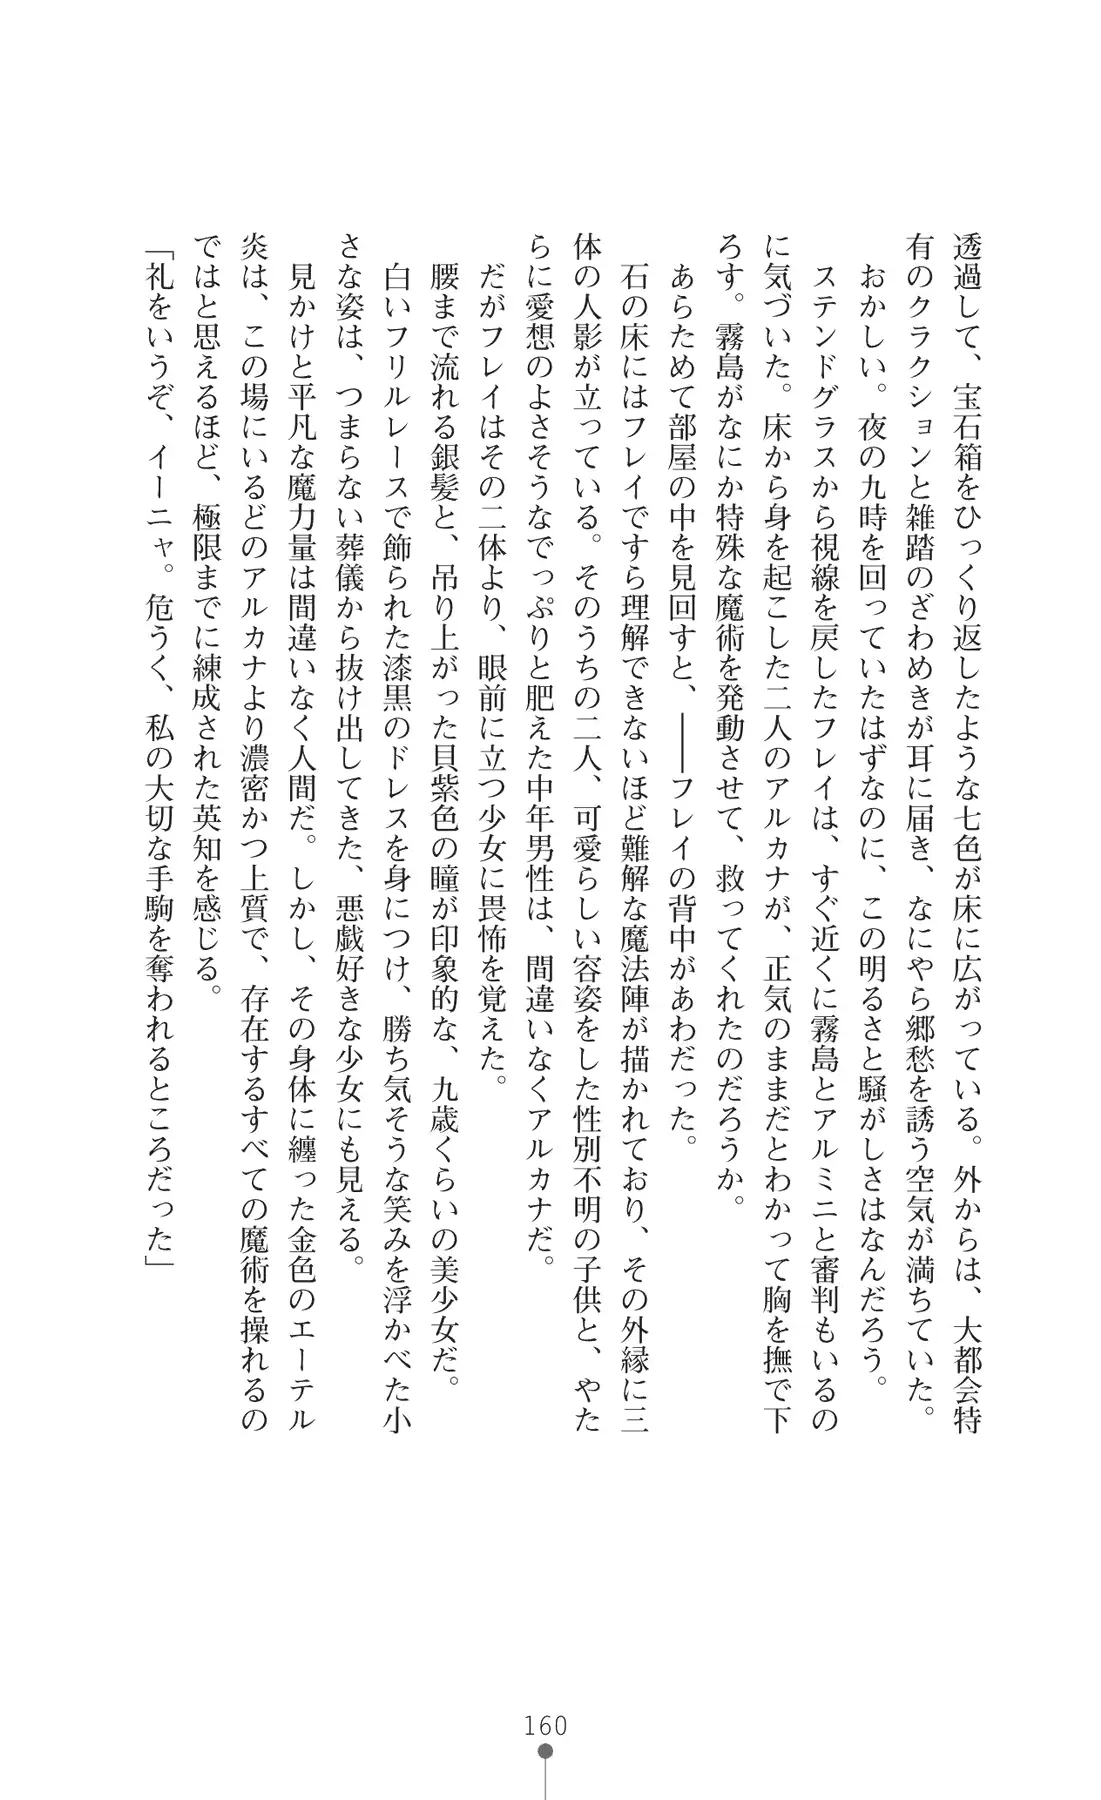 透過して、宝石箱をひっくり返したような七色が床に広がっている。外からは、大都会特
有のクラクションと雑踏のざわめきが耳に届き、なにやら郷愁を誘う空気が満ちていた。
おかしい。夜の九時を回っていたはずなのに、この明るさと騒がしさはなんだろう。
ステンドグラスから視線を戻したフレイは、すぐ近くに霧島とアルミニと審判もいるの
に気づいた。床から身を起こした二人のアルカナが、正気のままだとわかって胸を撫で下
ろす。霧島がなにか特殊な魔術を発動させて、救ってくれたのだろうか。
あらためて部屋の中を見回すと、――フレイの背中があわだった。
石の床にはフレイですら理解できないほど難解な魔法陣が描かれており、その外縁に三
体の人影が立っている。そのうちの二人、可愛らしい容姿をした性別不明の子供と、やた
らに愛想のよさそうなでっぷりと肥えた中年男性は、間違いなくアルカナだ。
だがフレイはその二体より、眼前に立つ少女に畏怖を覚えた。
腰まで流れる銀髪と、吊り上がった貝紫色の瞳が印象的な、九歳くらいの美少女だ。
白いフリルレースで飾られた漆黒のドレスを身につけ、勝ち気そうな笑みを浮かべた小
さな姿は、つまらない葬儀から抜け出してきた、悪戯好きな少女にも見える。
見かけと平凡な魔力量は間違いなく人間だ。しかし、その身体に纏った金色のエーテル
炎は、この場にいるどのアルカナより濃密かつ上質で、存在するすべての魔術を操れるの
ではと思えるほど、極限までに練成された英知を感じる。
「礼をいうぞ、イーニャ。危うく、私の大切な手駒を奪われるところだった」
160